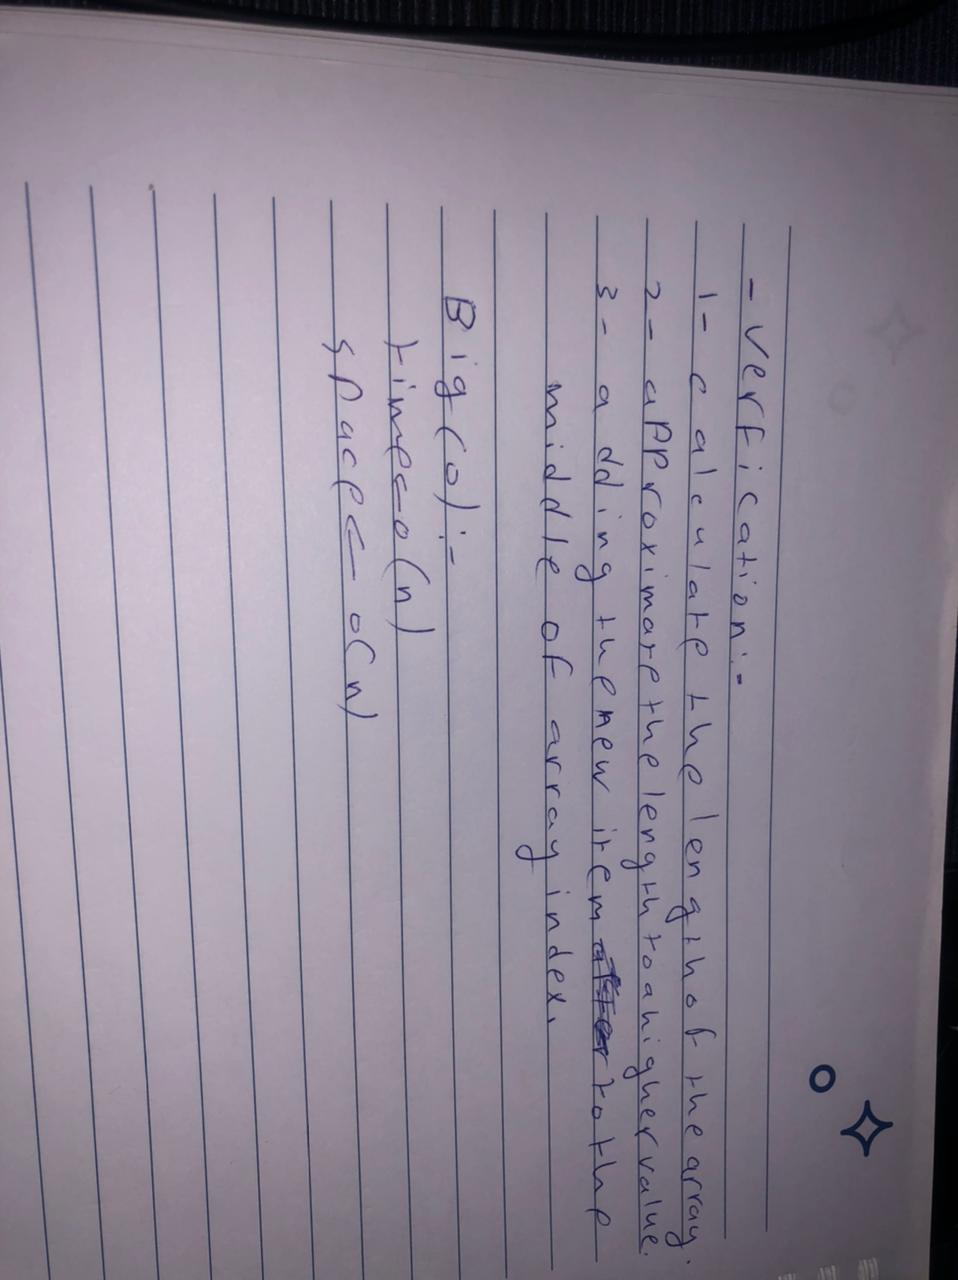 - Verfication:-
1- calculate the length of the array.
2- approximate the length to a higher value.
3- adding the new item to the
middle of array index.
Big(o):-
time← o(n)
space← o(n)